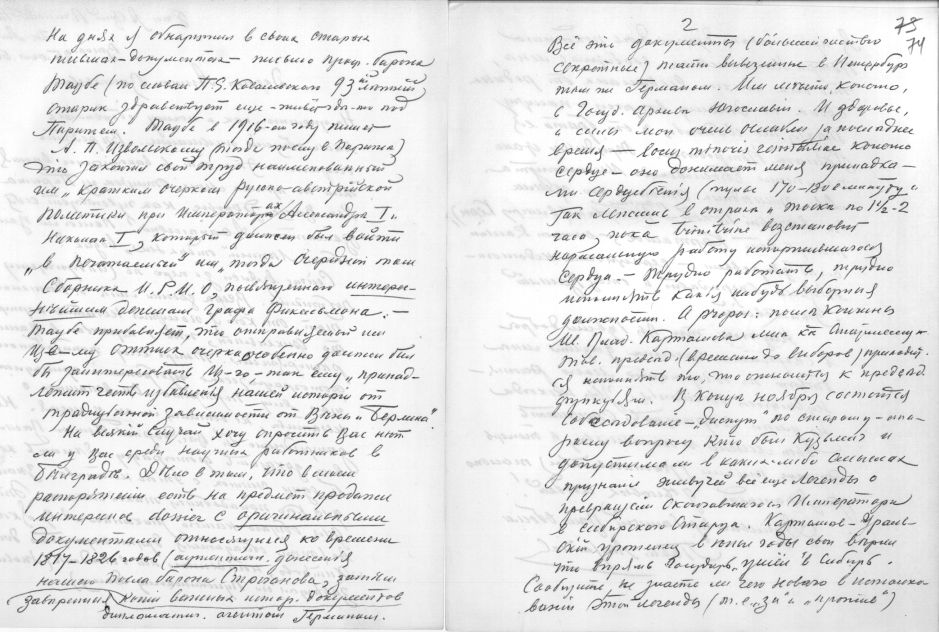 На днях я обнаружил в своих старых
письмах-документах письмо проф. барона
Таубе (по словам П.Е. Ковалевского 93 летний
старик здравствует еще - живёт где-то под
Парижем. Таубе в 1916-ом году пишет
А. П. Извольскому (тогда послу в Париже)
что закончил свой труд наименованный
им "Кратким очерком Русско-австрийской
Политики при Императорах Александре I и
Николае I, который должен был войти
"в печатаемый" им "тогда очередной том
Сборника И.Р.И.О., посвященного интерес-
нейшим донесениям графа Фикельмона. -
Таубе прибавляет, что отправляемый им
Из-му оттиск очерка особенно должен был
бы заинтересовать Из-го - так ему "принад-
лежит честь избавления нашей истории от
традиционной зависимости от Вены и Берлина".
На всякий случай хочу спросить Вас нет
ли у Вас среди научных работников в
Белграде. Дело в том, что в моем
распоряжении есть на предмет продажи
интересное dossier с оригинальными
документами относящимися ко времени
1817-1826 годов (донесения
нашего Посла барона Строганова, затем
копии важных истор. документов
дипломатич. агентом Германом.
2
78
74
Всё это документы (большинство
секретные) тайно вывезенные в Петербург
тем же Германом. Им место, конечно,
в Госуд. Архиве Югославии. И здоровье,
и силы мои очень ослабли за последнее
время - всему конечно
сердце - оно донимает меня припадка-
ми сердцебиения (пульс 170-180 в минуту).
Так лежишь в страхе и тоска по 1½-2
часа, пока восстановит
нормальную работу испортившегося
сердца. - Трудно работать, трудно
исполнять какия нибудь выборныя
должности. A propos: после кончины
Карташова мне как
тов. председ. (временно до выборов) приходит-
ся исполнять то, что относится к председ.
функциям. В конце ноября состоится
собеседование - "диспут" по старому-ста-
рому вопросу кто был Кузьмич и
допустима ли в каких-либо смыслах
признания живучей всё еще легенды о
превращении скончавшегося Императора
в сибирского старца. Карташов -
ский уроженец в юные годы свои верил
что впрямь Государь ушёл в Сибирь.
Сообщите, не знаете ли чего нового в истолко-
вании этой легенды (т.е. "за" и "против")